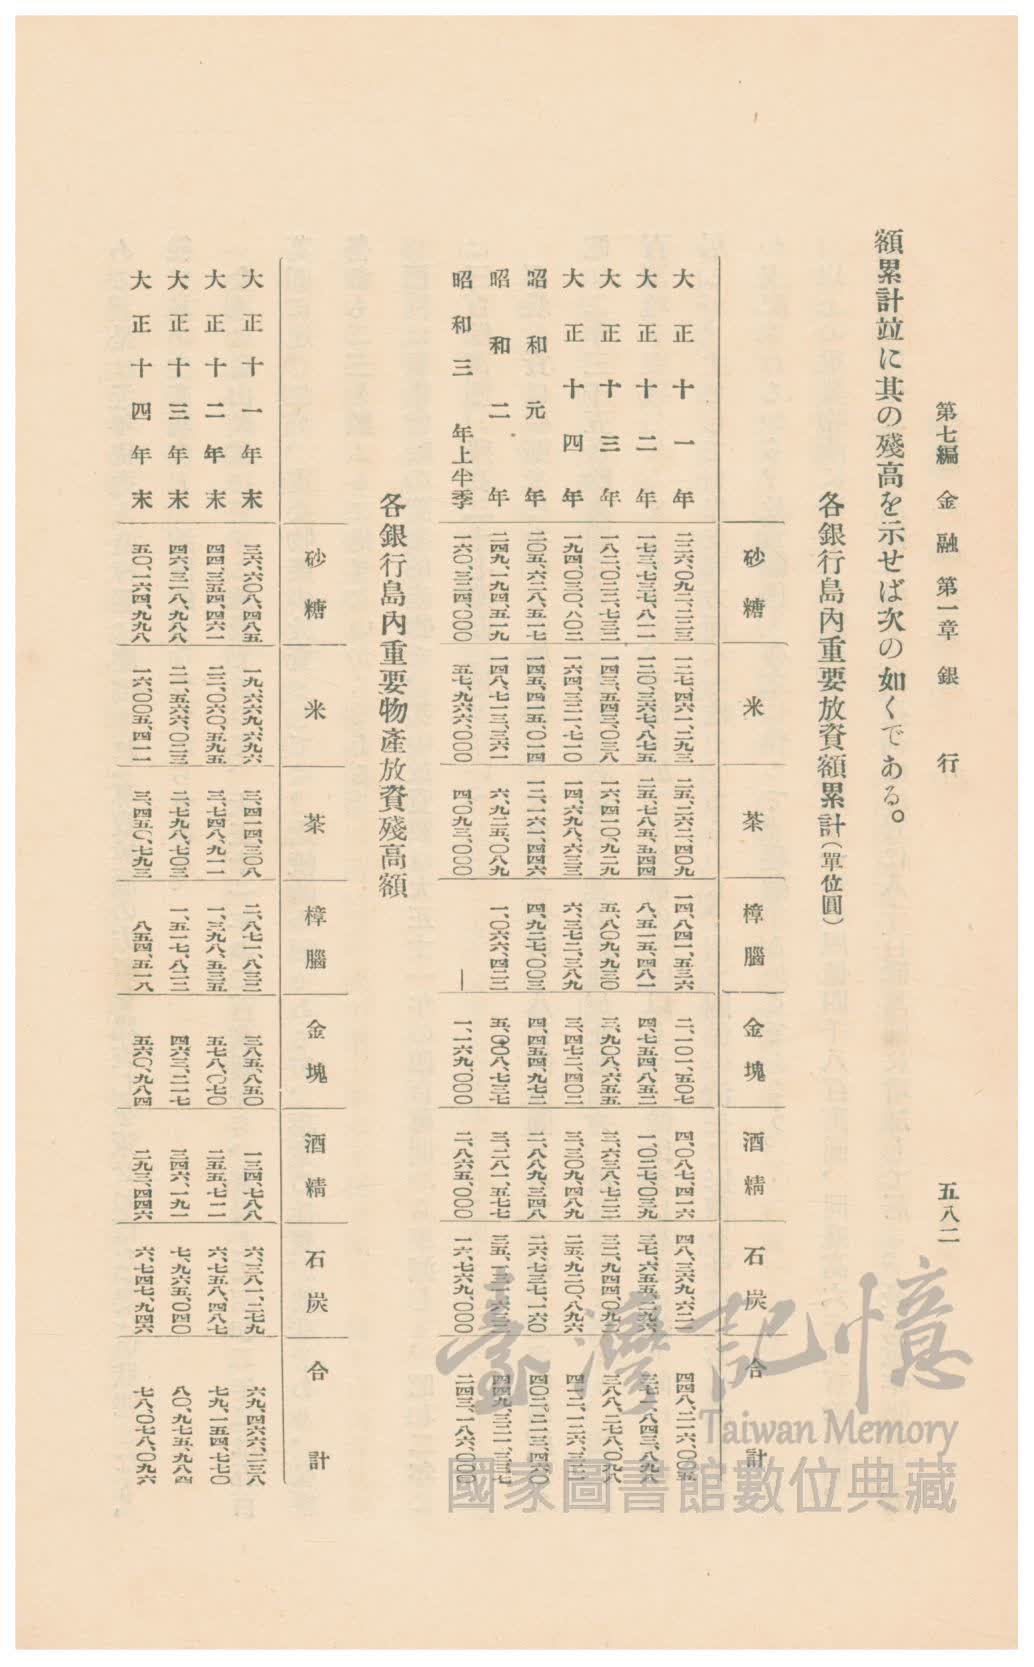 第七編 金融 第一章 銀行 五八二
額累計竝に其の殘高を示せば次の如くである。
各銀行島內重要放資額累計(單位圓)
砂糖 米 茶 樟腦 金塊 酒精 石炭 合計
大正十一年 二二六、〇九二、二二三 一二七、四六一、二九三 二五、二六二、四〇九 一四、八四一、五三六 二、一〇一、五〇七 四、〇八七、四一六 四八、三六九、六二一 四四八、二一六、〇〇五
大正十二年 一七三、七三七、八一一 一二〇、三六七、八七五 二五、七八五、五四四 八、五一五、四八一 四、七五四、八五二 一、〇二七、〇三九 三七、六五五、二九六 三七一、八四三、八九八
大正十三年 一八二、〇二二、七三二 一四三、五四三、〇三八 一六、四一〇、九二九 五、八〇九、九三〇 三、九〇八、六五五 三、六三八、七二二 三二、九四四、〇九二 三八八、二七八、〇九八
大正十四年 一九四、〇三〇、八〇二 一六四、三二一、七一〇 一四、六九八、六三三 六、三七二、三八九 三、四七二、四〇二 三、三〇九、四八九 二五、九二〇、八九六 四一二、一二六、三二一
昭和元年 二〇五、六二八、五一七 一四五、四一五、〇一四 一二、一六一、四四六 四、九二七、〇〇三 四、四五四、九七二 二、八八九、三四八 二六、七三七、一六〇 四〇二、二一三、四六〇
昭和二年 二四九、一九四、五一九 一四八、七一三、三六一 六、九二五、〇八九 一、〇六六、四二二 五、〇〇八、七三七 三、二八一、五七七 三五、一三一、六三二 四四九、三二一、三三七
昭和三年上半季 一六〇、三二四、〇〇〇 五七、九六六、〇〇〇 四、〇九三、〇〇〇 — 一、一六九、〇〇〇 二、八六五、〇〇〇 一六、七六九、〇〇〇 二四三、一八六、〇〇〇
各銀行島內重要物產放資殘高額
砂糖 米 茶 樟腦 金塊 酒精 石炭 合計
大正十一年末 三六、六〇八、四八五 一九、六六九、六九六 三、四一四、三〇八 二、八七一、八三二 三八五、八五〇 一三四、七八八 六、三八一、二七九 六九、四六六、二三八
大正十二年末 四四、三五四、四六一 二二、〇六〇、五九五 三、七四八、九一一 一、三九八、五三五 五七八、〇七〇 二五五、七一一 六、七五八、四八七 七九、一五四、七七〇
大正十三年末 四六、三一八、九八八 二一、五六六、〇二三 二、七九八、七〇三 一、五一七、八二二 四六三、二一七 三四六、一九一 七、九六五、〇四〇 八〇、九七五、九八四
大正十四年末 五〇、一六四、九九八 一六、〇〇五、四一一 三、四五〇、七九三 八五四、五一八 五六〇、九八四 二九三、四四六 六、七四七、九四六 七八、〇七八、〇九六
臺灣記憶
Taiwan Memory
國家圖書館數位典藏